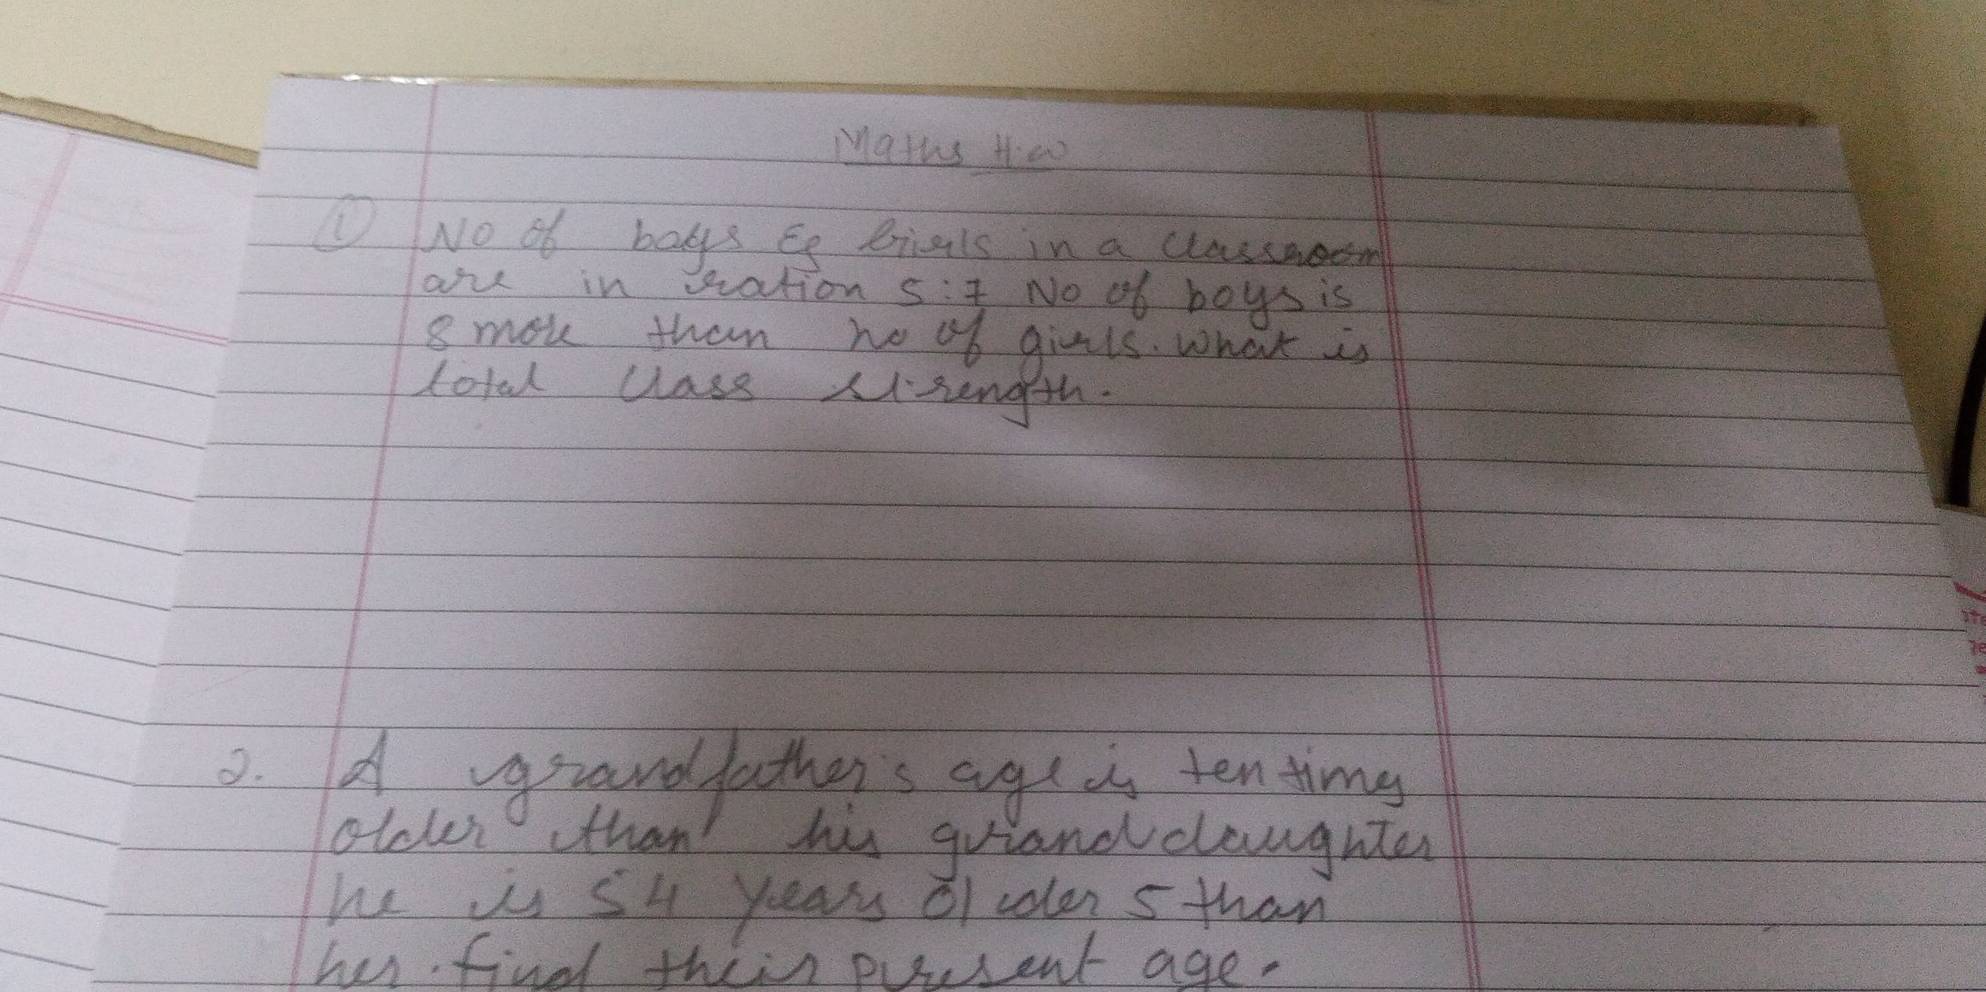 Maths H.w
① No of boys & Girls in a classroom
are in ration 5:7 No of boys is
8 more than no of girls. What is
total class strength.
2. A grandfather's age is ten times
older than his granddaughter
he is 54 years older 5 than
her. find their present age.